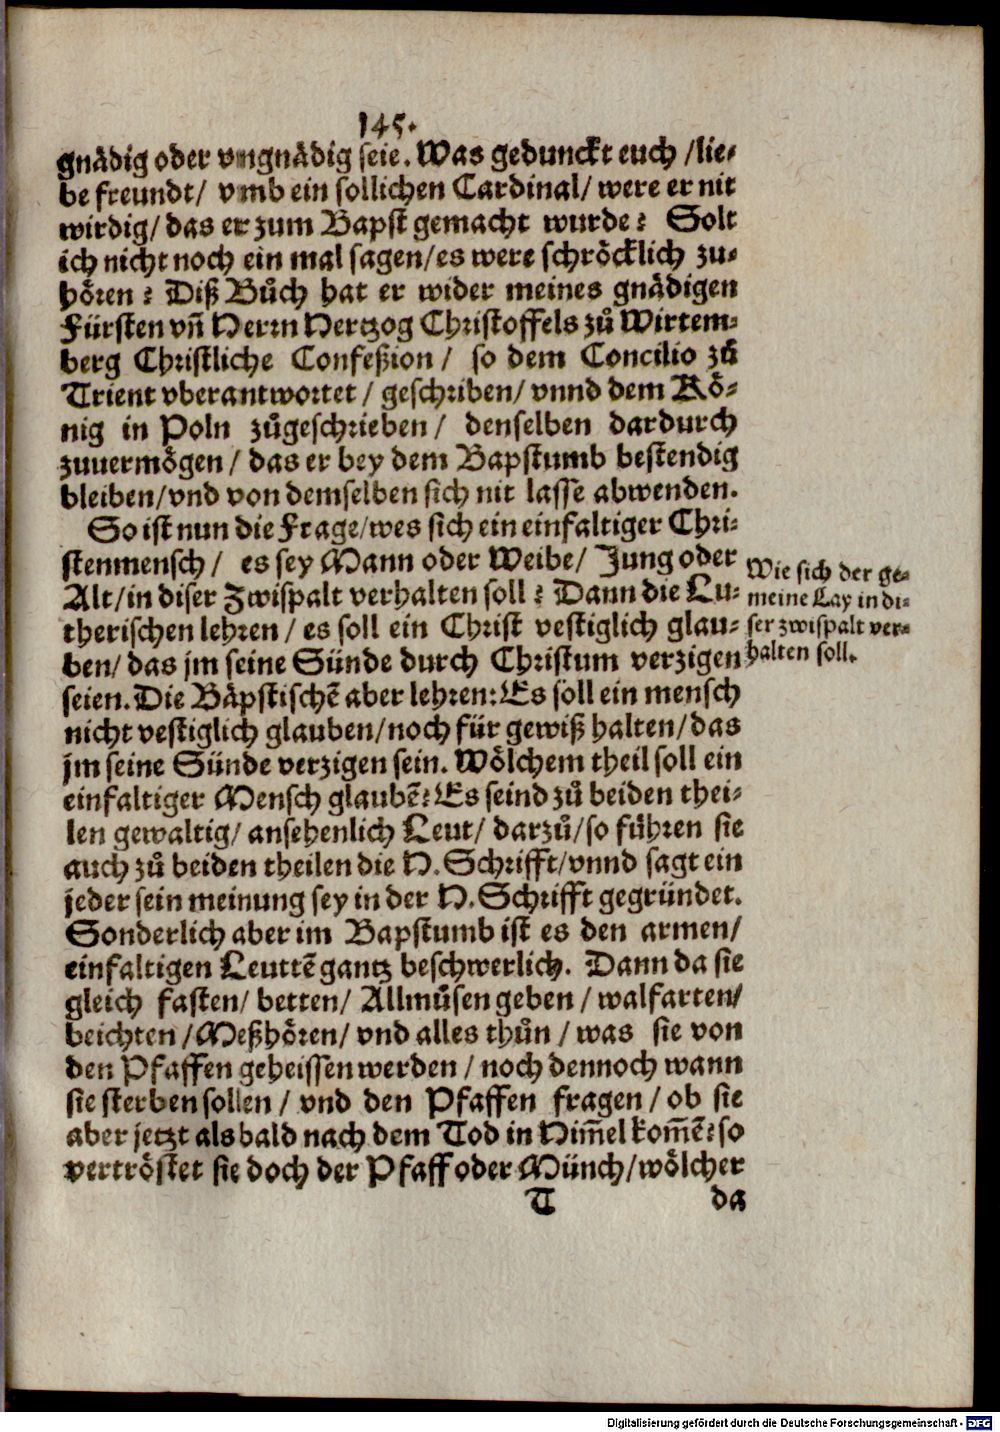 145.
gnädig oder vngnädig seie. Was gedunckt euch /lie-
be freundt/ vmb ein sollichen Cardinal/ were er nit
wirdig/ das er zum Bapst gemacht wurde? Solt
ich nicht noch ein mal sagen/es were schröcklich zu-
hören? Diß Bůch hat er wider meines gnädigen
Fürsten vñ Herrn Hertzog Christoffels zů Wirtem-
berg Christliche Confeßion / so dem Concilio zů
Trient vberantwortet / geschriben/ vnnd dem Kö-
nig in Poln zůgeschrieben / denselben dardurch
zuuermögen / das er bey dem Bapstumb bestendig
bleiben/vnd von demselben sich nit lasse abwenden.
So ist nun die Frage/wes sich ein einfaltiger Chri-
stenmensch / es sey Mann oder Weibe/ Jung oder
Alt/in diser Zwispalt verhalten soll? Dann die Lu-
therischen lehren / es soll ein Christ vestiglich glau-
ben/ das jm seine Sünde durch Christum verzigen
seien. Die Bäpstischē aber lehren: Es soll ein mensch
nicht vestiglich glauben/noch für gewiß halten/das
jm seine Sünde verzigen sein. Wölchem theil soll ein
einfaltiger Mensch glaubē? Es seind zů beiden thei-
len gewaltig/ ansehenlich Leut/ darzů/so führen sie
auch zů beiden theilen die H. Schrifft/vnnd sagt ein
jeder sein meinung sey in der H. Schrifft gegründet.
Sonderlich aber im Bapstumb ist es den armen/
einfaltigen Leuttē gantz beschwerlich. Dann da sie
gleich fasten/ betten/ Allmůsen geben / walfarten/
beichten /Meßhören/ vnd alles thůn / was sie von
den Pfaffen geheissen werden / noch dennoch wann
sie sterben sollen / vnd den Pfaffen fragen / ob sie
aber jetzt als bald nach dem Tod in Him̃el kom̃ē? so
vertröstet sie doch der Pfaff oder Münch/wölcher
T da
Wie sich der ge-
meine Lay in di-
ser zwispalt ver-
halten soll.
Digitalisierung gefördert durch die Deutsche Forschungsgemeinschaft - DFG